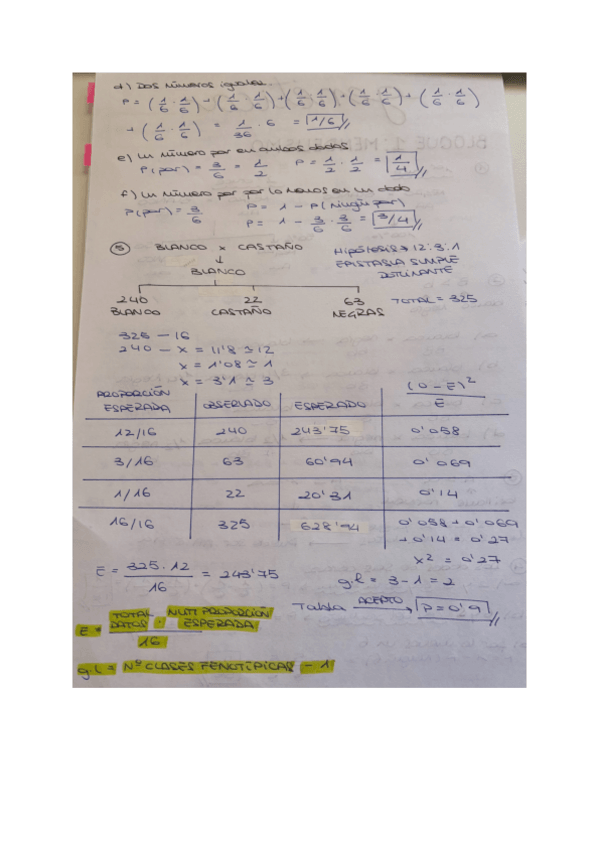 d) Dos números iguales.
P = (1/6 · 1/6) + (1/6 · 1/6) + (1/6 · 1/6) + (1/6 · 1/6) + (1/6 · 1/6)
+ (1/6 · 1/6) = 1/36 · 6 = 1/6
e) Un número par en ambos dados
P(par) = 3/6 = 1/2 P = 1/2 · 1/2 = 1/4
f) Un número par por lo menos en un dado
P(par) = 3/6 P = 1 - P(ningún par)
P = 1 - 3/6 · 3/6 = 3/4
5 BLANCO x CASTAÑO Hipótesis → 12:3:1
↓ EPISTASIA SIMPLE
BLANCO DOMINANTE
240 22 63 TOTAL = 325
BLANCO CASTAÑO NEGRAS
325 — 16
240 - x = 11'8 ≃ 12
x = 1'08 ≃ 1
x = 3'1 ≃ 3
PROPORCIÓN ESPERADA OBSERVADO ESPERADO (O - E)²/E
12/16 240 243'75 0'058
3/16 63 60'94 0'069
1/16 22 20'31 0'14
16/16 325 628'94 0'058 + 0'069
+ 0'14 = 0'27
x² = 0'27
E = 325·12/16 = 243'75 g.l = 3 - 1 = 2
Tabla ACEPTO → P = 0'9
E = TOTAL DATOS · NUM PROPORCIÓN ESPERADA / 16
g.l = Nº CLASES FENOTÍPICAS - 1